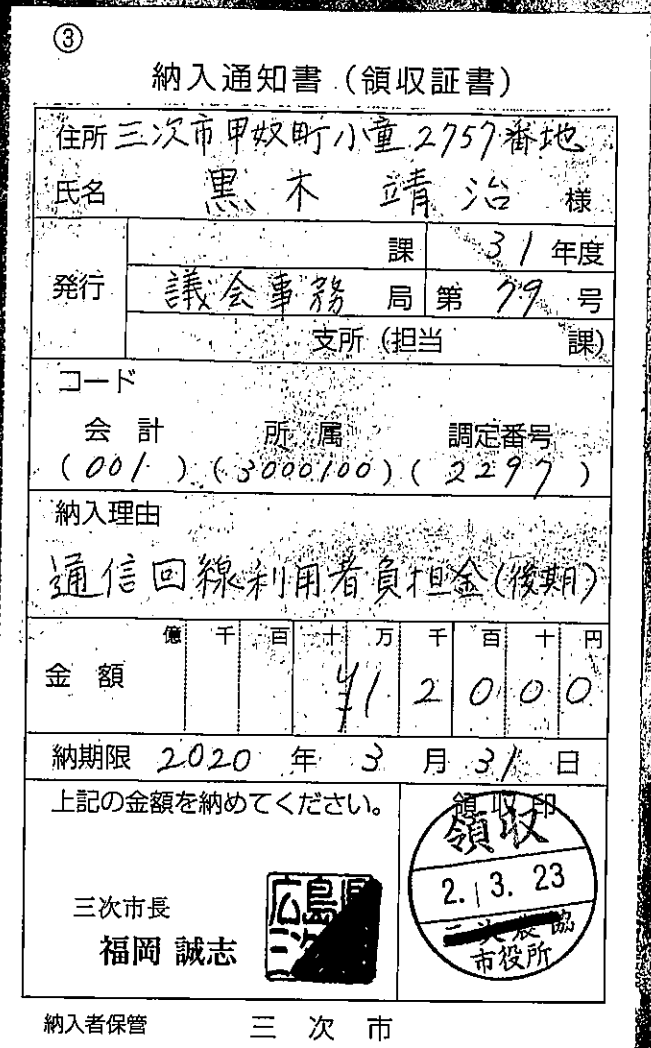 ③
納入通知書(領収証書)
住所 三次市甲奴町小童2757番地
氏名 黒木 靖治 様
発行 課 31年度
議会事務局 第79号
支所(担当 課)
コード
会計 所属 調定番号
(001)(3000100)(2297)
納入理由
通信回線利用者負担金(後期)
億 千 百 十 万 千 百 十 円
金額 ¥12000
納期限 2020年3月31日
上記の金額を納めてください。
領収印
領収
2.3.23
農協
市役所
広島県
三次市長
福岡 誠志
納入者保管 三次市